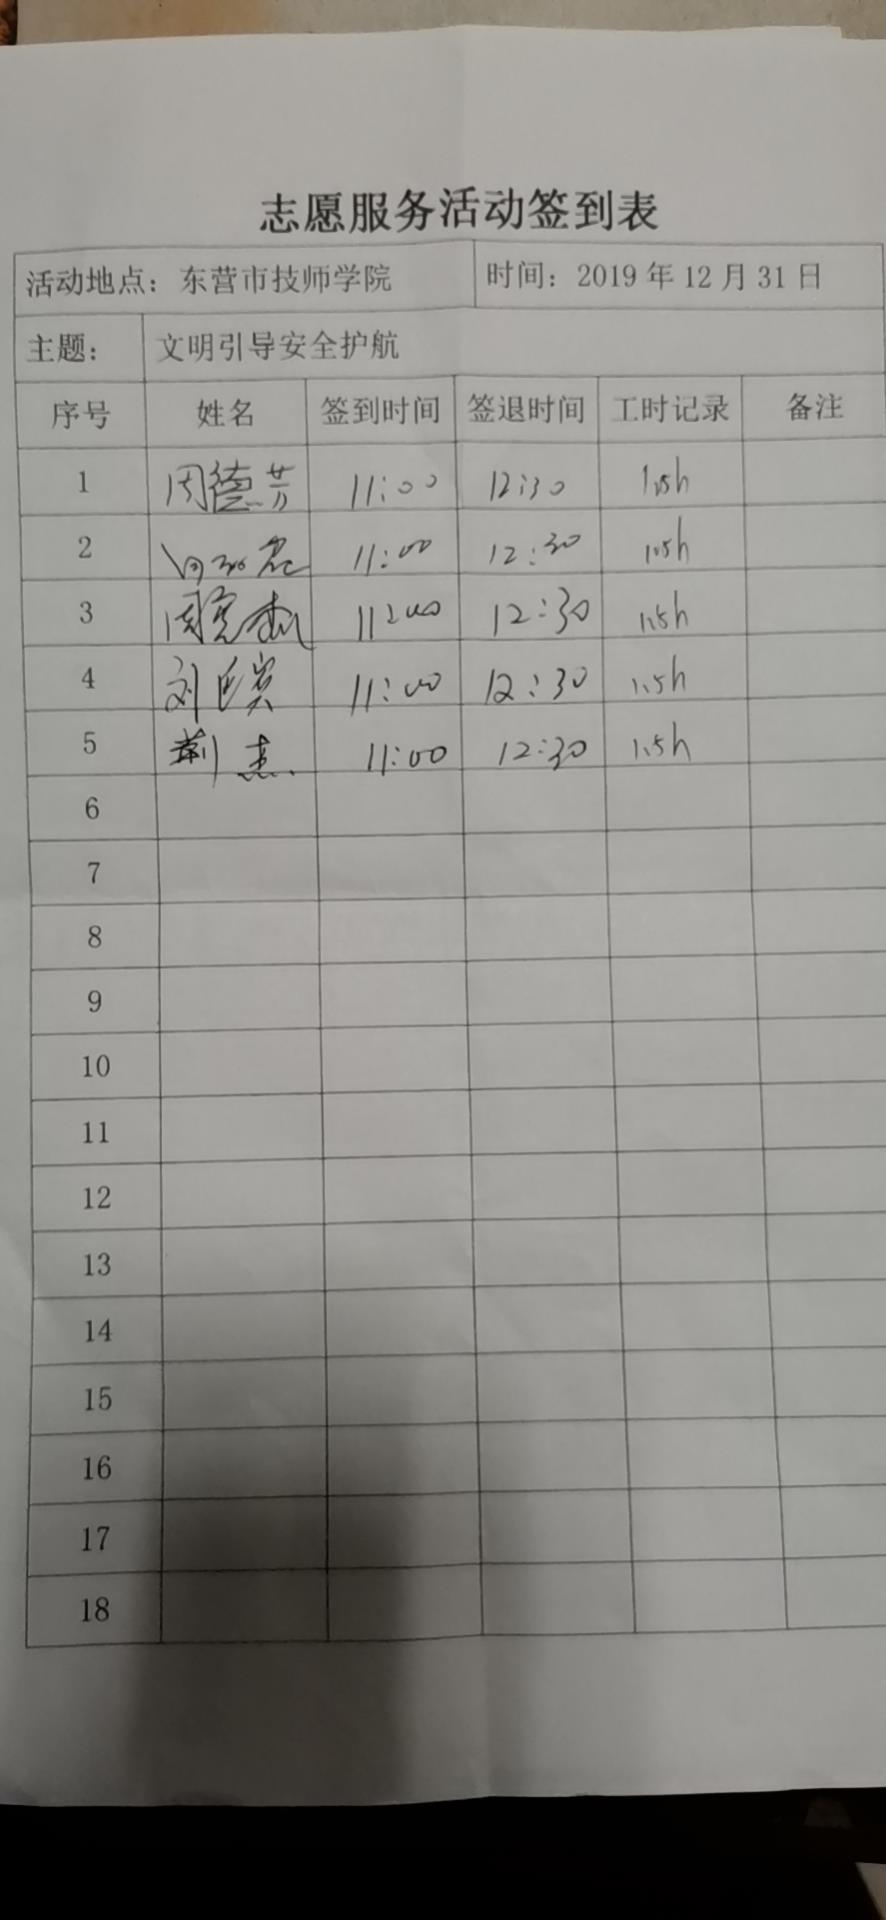 志愿服务活动签到表
活动地点：东营市技师学院 时间：2019年12月31日
主题： 文明引导安全护航
序号 姓名 签到时间 签退时间 工时记录 备注
1 周德芳 11:00 12:30 1.5h
2 11:00 12:30 1.5h
3 11:00 12:30 1.5h
4 11:00 12:30 1.5h
5 荆杰 11:00 12:30 1.5h
6
7
8
9
10
11
12
13
14
15
16
17
18